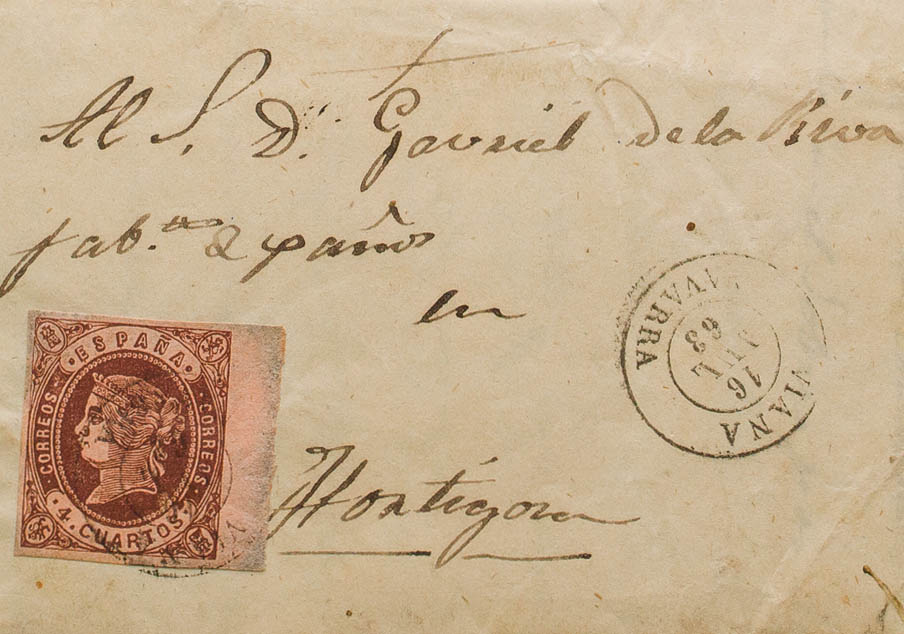 Al S. D. Gavriel de la Riva
fab.te de paños
en
Hortigosa
ESPAÑA
CORREOS
CORREOS
4 CUARTOS
VIANA
16
JUL
63
NAVARRA